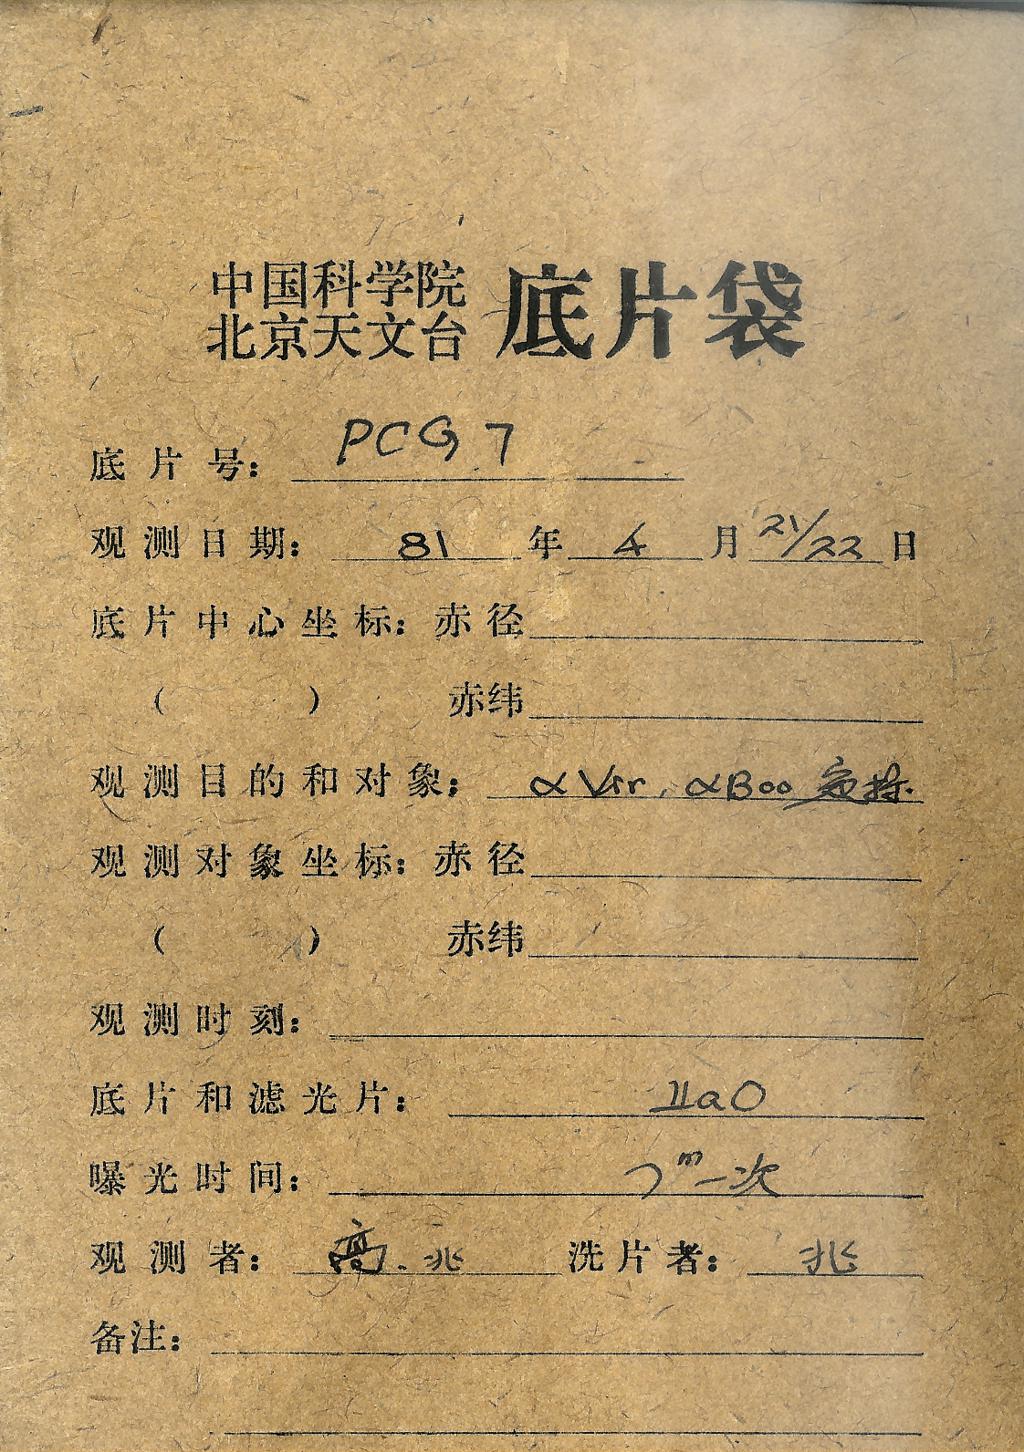 中国科学院
北京天文台 底片袋
底片号: PCG 7
观测日期: 81 年 4 月 21/22 日
底片中心坐标: 赤径
( ) 赤纬
观测目的和对象: α Vir, α Boo 定标.
观测对象坐标: 赤径
( ) 赤纬
观测时刻:
底片和滤光片: IIaO
曝光时间: 一次
观测者: 高. 兆 洗片者: 兆
备注: